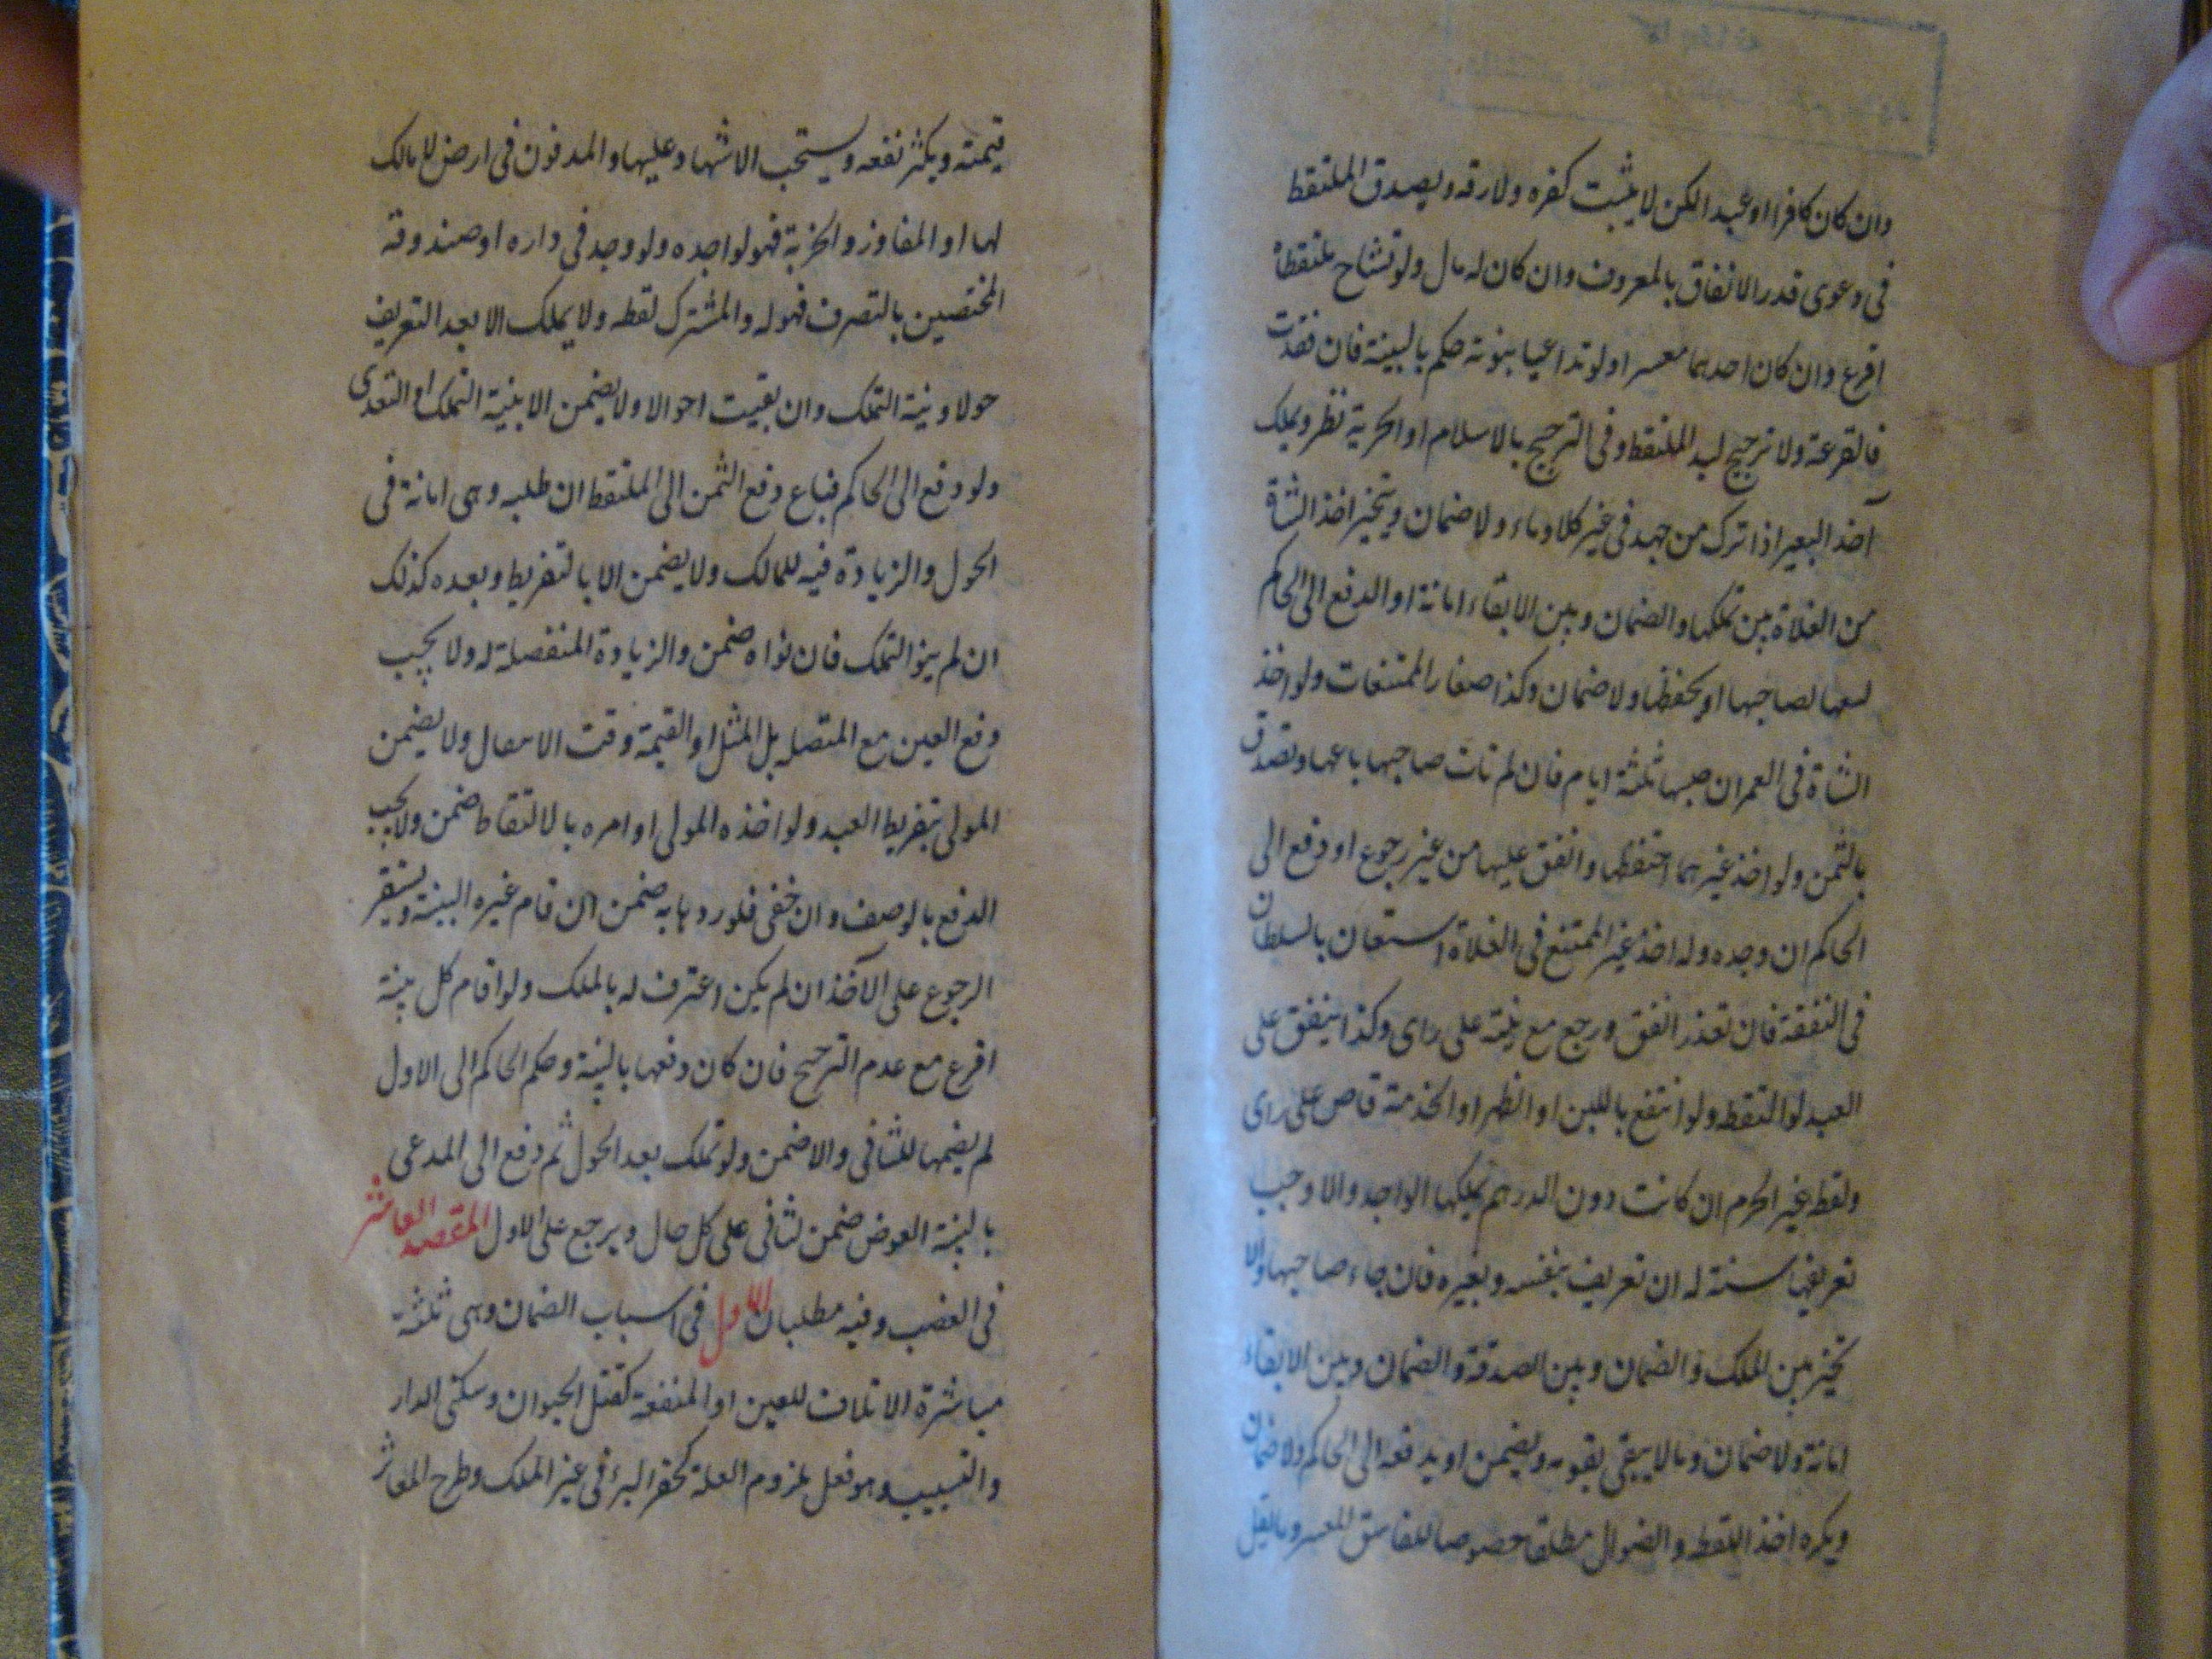 وان كان كافرا او عبدا لكن لا يثبت كفره ولا رقه ويصدق الملتقط
فى دعوى قدر الانفاق بالمعروف وان كان له مال ولو تشاح ملتقطا
اقرع وان كان احدهما معسرا ولو تداعيا بنوته حكم بالبينة فان فقدت
فالقرعة ولا ترجيح ليد الملتقط وفى الترجيح بالاسلام او الحرية نظر ويملك
آخذ البعير اذا ترك من جهد فى غير كلاء وماء ولا ضمان ويتخير اخذ الشاة
من الفلاة بين تملكها والضمان وبين الابقاء امانة او الدفع الى الحاكم
لصاحبها او يحفظها ولا ضمان وكذا صغار الممتنعات ولو اخذ
الشاة فى العمران حبسها ثلثة ايام فان لم تات صاحبها باعها وتصدق
بالثمن ولو اخذ غيرهما احتفظها وانفق عليها من غير رجوع او دفع الى
الحاكم ان وجده ولو اخذ غير الممتنع فى الفلاة استعان بالسلطان
فى النفقة فان تعذر انفق ورجع مع نيته على راى وكذا ينفق على
العبد لو التقط ولو انتفع باللبن او الظهر او الخدمة قاص على راى
ولقطة غير الحرم ان كانت دون الدرهم يملكها الواجد والا وجب
تعريفها سنة له ان تعريف بنفسه وبغيره فان جاء صاحبها والا
تخير بين الملك والضمان وبين الصدقة والضمان وبين الابقاء
امانة ولا ضمان وما لا يبقى يقومه ويضمن او يدفعه الى الحاكم ولا ضمان
ويكره اخذ اللقطه والضوال مطلقا خصوصا للفاسق المعسر وما يقل
قيمته ويكثر نفعه ويستحب الاشهاد عليها والمدفون فى ارض لا مالك
لها او المفاوز والخربة فهو لواجده ولو وجد فى داره او صندوقه
المختصين بالتصرف فهو له والمشترك لقطه ولا يملك الا بعد التعريف
حولا ونية التملك وان بقيت احوالا ولا يضمن الا بنية التملك او التعدى
ولو دفع الى الحاكم فباع دفع الثمن الى الملتقط ان طلبه وهى امانة فى
الحول والزيادة فيه للمالك ولا يضمن الا بالتفريط وبعده كذلك
ان لم ينو التملك فان نواه ضمن والزيادة المنفصلة له ولا يجب
دفع العين مع المتصله بل المثل او القيمة وقت الانتقال ولا يضمن
المولى بتفريط العبد ولو اخذه المولى او امره بالالتقاط ضمن ولا يجب
الدفع بالوصف وان خفى فلو ردها به ضمن ان قام غيره البينة ويستقر
الرجوع على الآخذ ان لم يكن اعترف له بالملك ولو اقام كل بينة
اقرع مع عدم الترجيح فان كان دفعها بالبينة وحكم الحاكم الى الاول
لم يضمنها للثانى والا ضمن ولو تملك بعد الحول ثم دفع الى المدعى
بالبينة العوض ضمن للثانى على كل حال ويرجع على الاول المقصد العاشر
فى الغصب وفيه مطلبان الاول فى اسباب الضمان وهى ثلثة
مباشرة الاتلاف للعين او المنفعة كقتل الحيوان وسكنى الدار
والتسبيب وهو فعل ملزوم العلة كحفر البئر فى غير الملك وطرح المعاثر